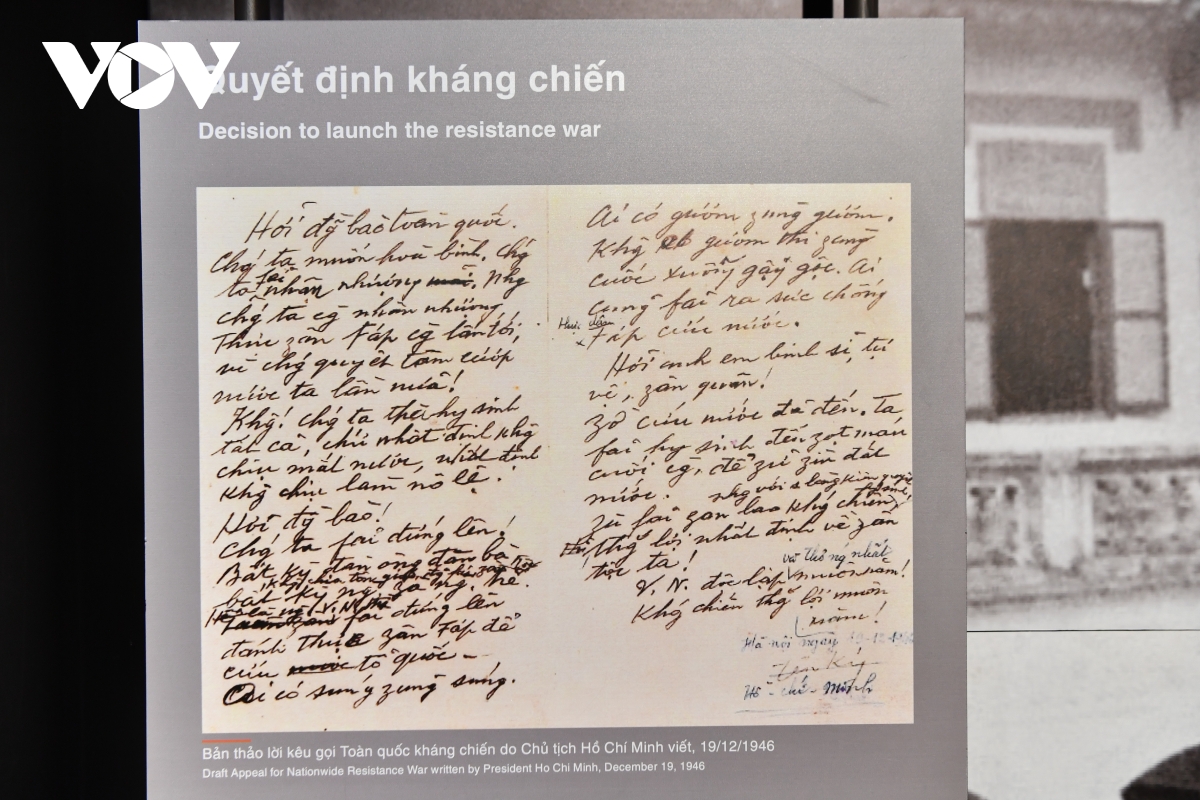 VOV
Quyết định kháng chiến
Decision to launch the resistance war
Hỡi đg̃ bào toàn quốc.
Chǵ ta muốn hoà bình, chǵ
ta fải nhân nhượng. Nhg
chǵ ta cg̀ nhân nhượng
Thực zân Fáp cg̀ lấn tới,
vì chǵ quyết tâm cướp
nước ta lần nữa!
Khg̃! Chǵ ta thà hy sinh
tất cả, chứ nhất định khg̃
chịu mất nước, nhất định
khg̃ chịu làm nô lệ.
Hỡi đg̃ bào!
Chǵ ta fải đứng lên!
Bất kỳ đàn ông đàn bà
bất kỳ ng̀ già ng̀ trẻ.
Hễ là ng̀ V.N. thì
fải đứng lên
đánh thực zân Fáp để
cứu tổ quốc –
Ai có súng zùng súng.
Ai có gươm zùng gươm.
Khg̃ có gươm thì zùng
cuốc xuổng gậy gộc. Ai
cũng fải ra sức chống
thực dân
Fáp cứu nước.
Hỡi anh em binh sĩ, tự
vệ, zân quân!
Zờ cứu nước đã đến. Ta
fải hy sinh đến zọt máu
cuối cg̀, để zữ zìn đất
nước.
Zù fải zan lao khǵ chiến,
nhg với 1 lòng kiên quyết
thắg lợi nhất định về zân
tộc ta!
V.N. độc lập và thống nhất muôn năm!
Khǵ chiến thắg lợi muôn
năm!
Hà nội ngày 19-12-1946
Hồ - chí - minh
Bản thảo lời kêu gọi Toàn quốc kháng chiến do Chủ tịch Hồ Chí Minh viết, 19/12/1946
Draft Appeal for Nationwide Resistance War written by President Ho Chi Minh, December 19, 1946